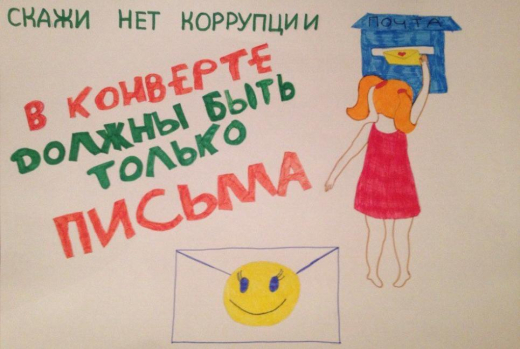 СКАЖИ НЕТ КОРРУПЦИИ
ПОЧТА
В КОНВЕРТЕ
ДОЛЖНЫ БЫТЬ
ТОЛЬКО
ПИСЬМА